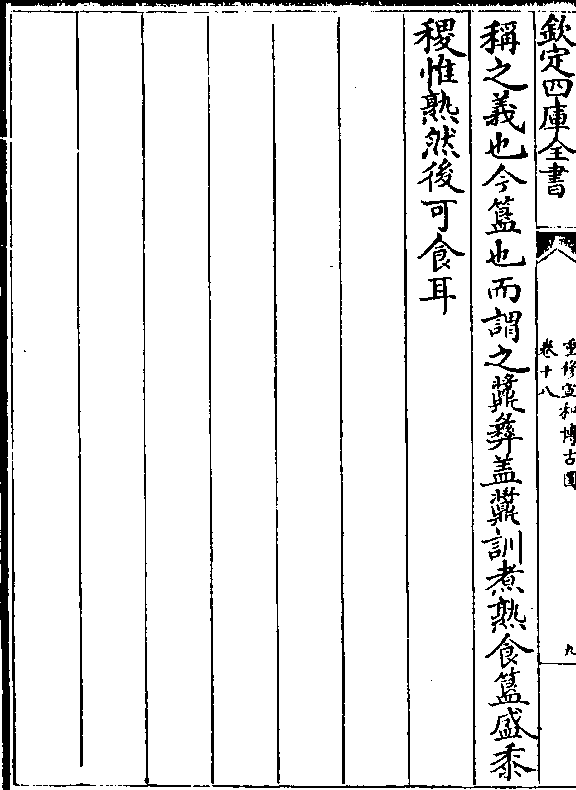 欽定四庫全書
重修宣和博古圖
卷十八
九
稱之義也今簋也而謂之䵼彝盖䵼訓煮熟食簋盛黍
稷惟熟然後可食耳